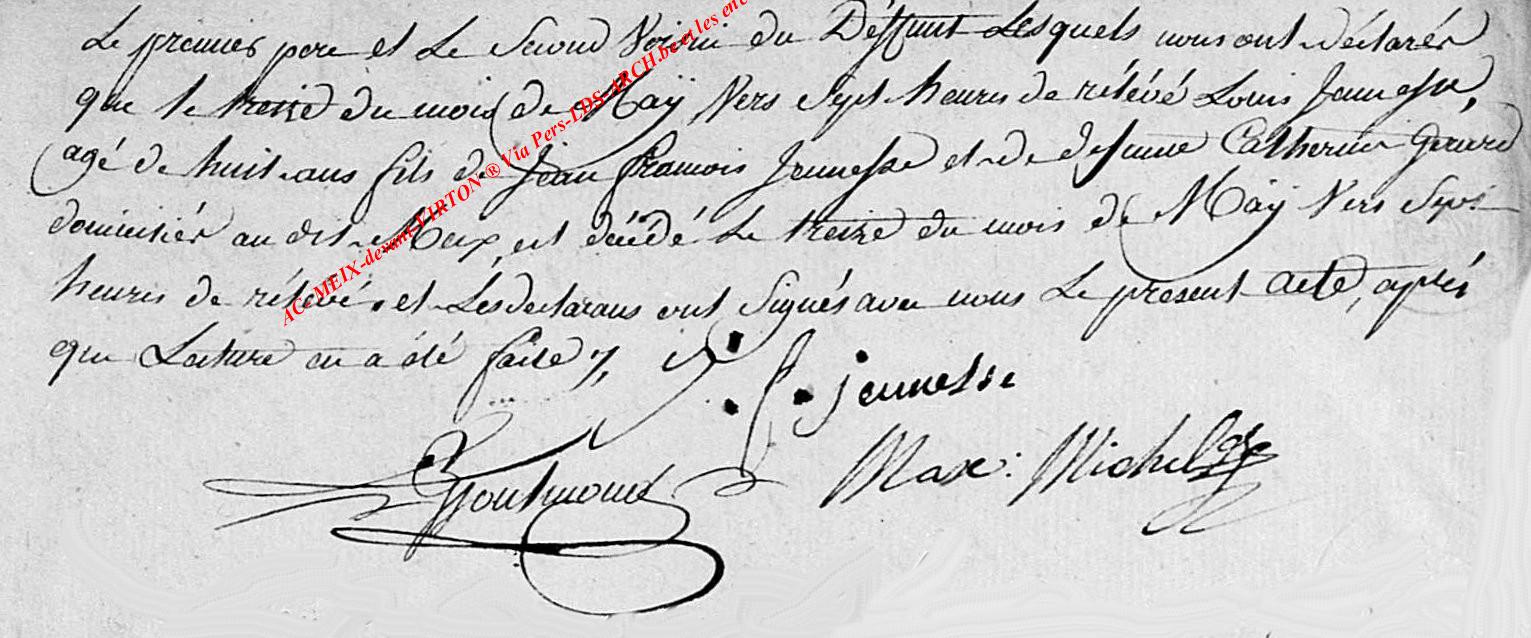 Le premier pere et Le Second Voisin du Deffunt Lesquels nous ont déclarés
que le treize du mois de Maÿ Vers Sept heures de rélévé Louis Jeunesse,
agé de huit ans fils de Jean françois Jeunesse et de défunte Catherine Gerard
domiciliés au dit Meix, est décédé Le treize du mois de Maÿ Vers Sept
heures de rélévé, et Les declarans ont Signés avec nous Le present acte, aprés
que Lecture en a été faite
J. f. jeunesse
Max: Michel
AC-MEIX-devant-VIRTON ® Via Pers-LDS-ARCH.be et les en